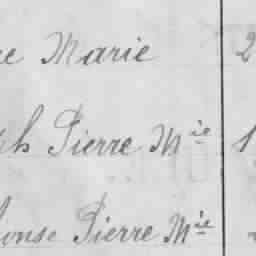 Marie 2
ph Pierre Mie 1
onse Pierre Mie